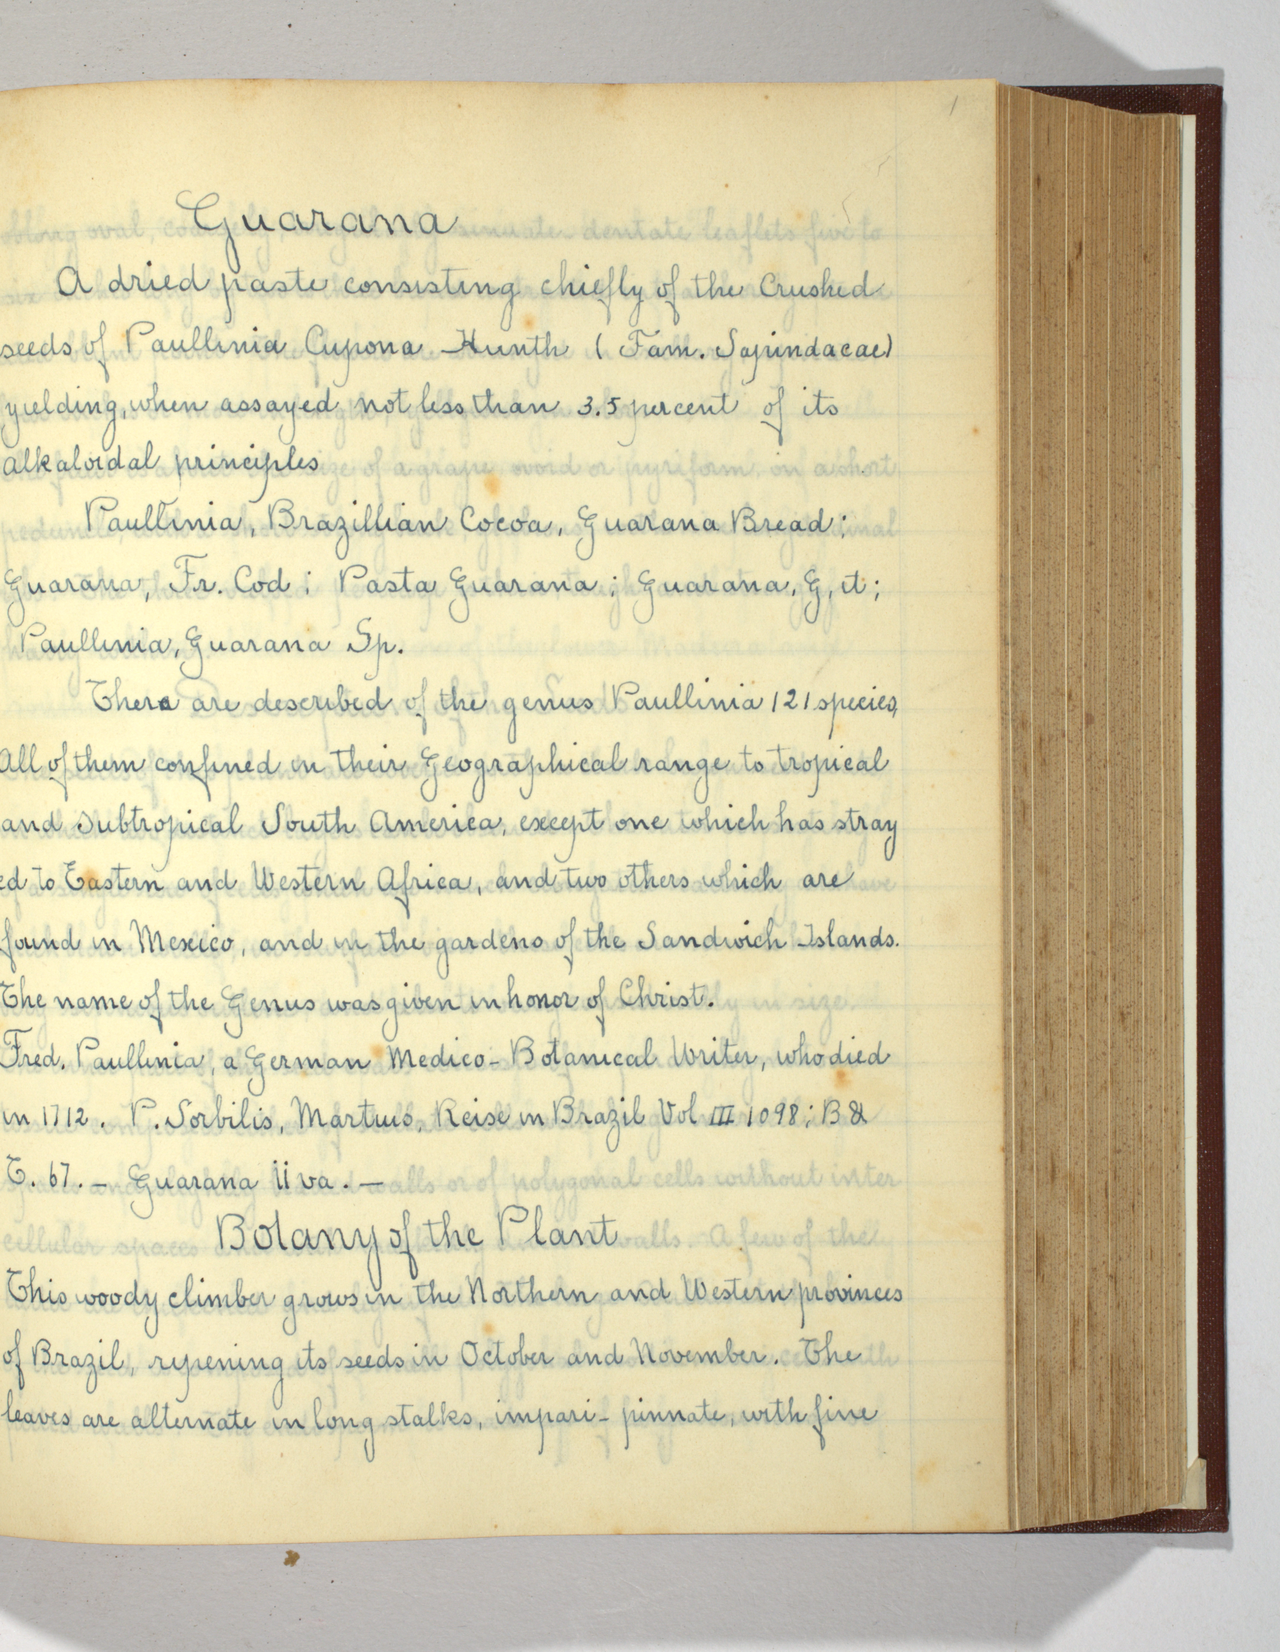 1
Guarana
A dried paste consisting chiefly of the Crushed
seeds of Paullinia Cupona Kunth ( Fam. Sapindacae)
yielding, when assayed not less than 3.5 percent of its
alkaloidal principles
Paullinia, Brazillian Cocoa, Guarana Bread;
Guarana, Fr. Cod; Pasta Guarana; Guarana, G, it;
Paullinia, Guarana Sp.
There are described of the genus Paullinia 121 species,
All of them confined in their Geographical range to tropical
and subtropical South America, except one which has stray
ed to Eastern and Western Africa, and two others which are
found in Mexico, and in the gardens of the Sandwich Islands.
The name of the Genus was given in honor of Christ.
Fred. Paullinia, a German Medico-Botanical Writer, who died
in 1712. P. Sorbilis, Martius, Reise in Brazil Vol III 1098; B &
T. 67. — Guarana üva. —
Botany of the Plant
This woody climber grows in the Northern and Western provinces
of Brazil, ripening its seeds in October and November. The
leaves are alternate in long stalks, impari-pinnate, with five